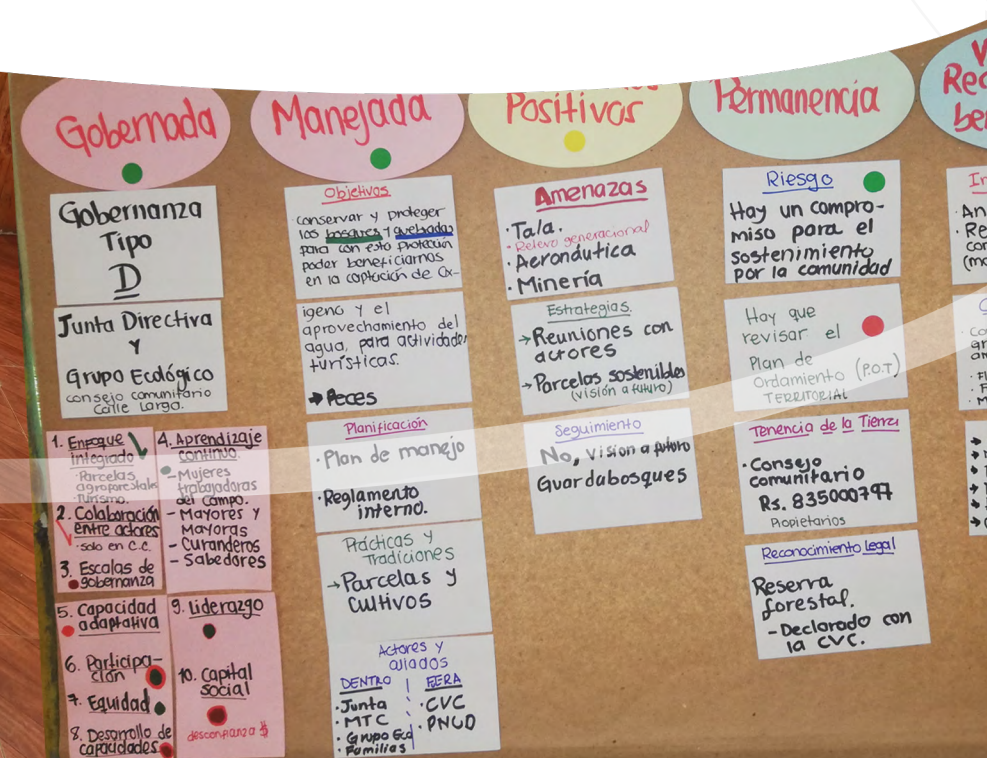 Gobernada
Gobernanza
Tipo
D
Junta Directiva
Y
Grupo Ecológico
consejo comunitario
Calle Larga.
1. Enfoque
integrado
-Parcelas
agroforestales
-Turismo.
2. Colaboración
entre actores
-solo en C.C.
3. Escalas de
gobernanza
4. Aprendizaje
continuo.
-Mujeres
trabajadoras
del campo.
- Mayores y
Mayoras
- Curanderos
- Sabedores
5. Capacidad
adaptativa
6. Participa-
ción
7. Equidad
8. Desarrollo de
capacidades
9. Liderazgo
10. Capital
social
desconfianza $
Manejada
Objetivos
conservar y proteger
los bosques y quebradas
para con esta protección
poder beneficiarnos
en la captación de Ox-
igeno y el
aprovechamiento del
agua, para actividades
turísticas.
→ Peces
Planificación
·Plan de manejo
·Reglamento
interno.
Prácticas y
Tradiciones
→Parcelas y
cultivos
Actores y
aliados
DENTRO
·Junta
·MTC
·Grupo Eco
·Familias
FUERA
·CVC
·PNUD
Positivos
Amenazas
·Tala.
·Relevo generacional
·Aeronáutica
·Minería
Estrategias.
→Reuniones con
actores
→Parcelas sostenibles
(visión a futuro)
Seguimiento
No, vision a futuro
Guardabosques
Permanencia
Riesgo
Hay un compro-
miso para el
sostenimiento
por la comunidad
Hay que
revisar el
Plan de
Ordamiento (P.O.T)
TERRITORIAL
Tenencia de la Tierra
·Consejo
comunitario
Rs. 835000797
Propietarios
Reconocimiento Legal
Reserva
forestal.
-Declarado con
la CVC.